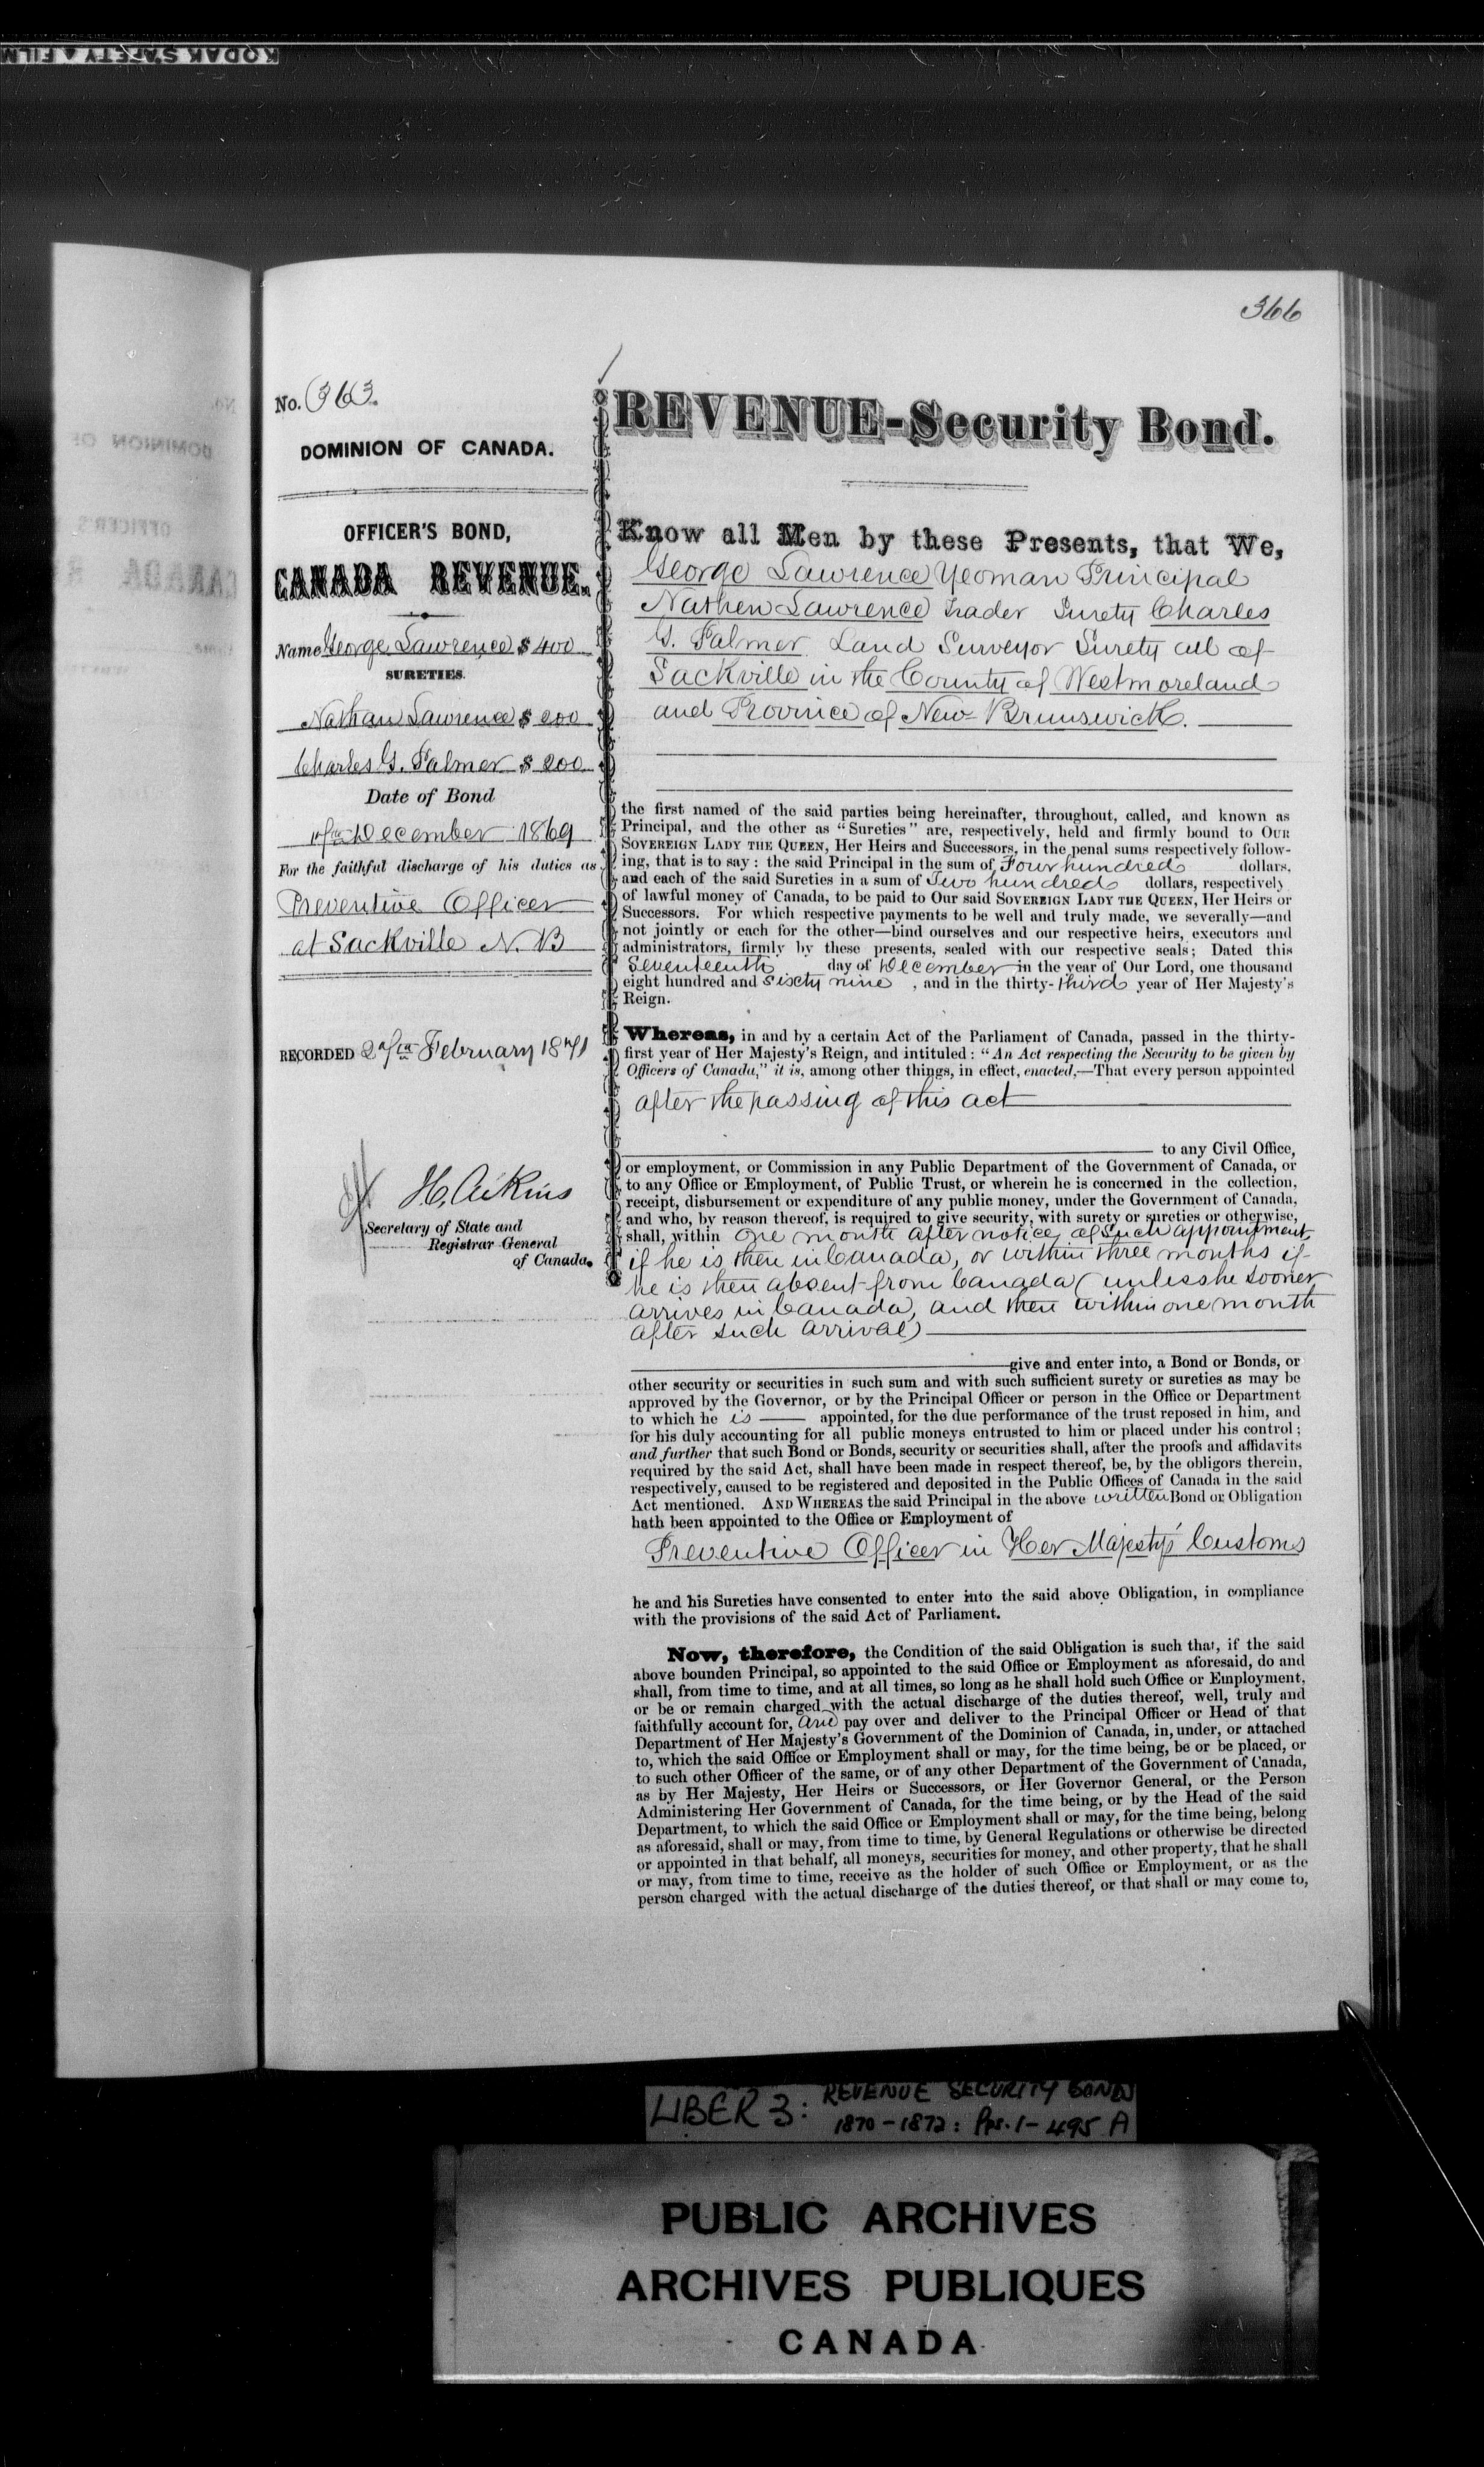 KODAK SAFETY FILM
366
No. 363.
DOMINION OF CANADA.
OFFICER'S BOND,
CANADA REVENUE.
Name George Lawrence $ 400
SURETIES.
Nathan Lawrence $ 200
Charles G. Palmer $ 200
Date of Bond
17th December 1869
For the faithful discharge of his duties as
Preventive Officer
at Sackville N. B
RECORDED 27th February 1871
H. Aikins
Secretary of State and
Registrar General
of Canada.
REVENUE-Security Bond.
Know all Men by these Presents, that We,
George Lawrence Yeoman Principal
Nathen Lawrence trader Surety Charles
G. Palmer Land Surveyor Surety all of
Sackville in the County of Westmoreland
and Province of New Brunswick.
the first named of the said parties being hereinafter, throughout, called, and known as
Principal, and the other as "Sureties" are, respectively, held and firmly bound to OUR
SOVEREIGN LADY THE QUEEN, Her Heirs and Successors, in the penal sums respectively follow-
ing, that is to say: the said Principal in the sum of Four hundred dollars,
and each of the said Sureties in a sum of Two hundred dollars, respectively
of lawful money of Canada, to be paid to Our said SOVEREIGN LADY THE QUEEN, Her Heirs or
Successors. For which respective payments to be well and truly made, we severally—and
not jointly or each for the other—bind ourselves and our respective heirs, executors and
administrators, firmly by these presents, sealed with our respective seals; Dated this
Seventeenth day of December in the year of Our Lord, one thousand
eight hundred and sixty nine, and in the thirty-third year of Her Majesty's
Reign.
Whereas, in and by a certain Act of the Parliament of Canada, passed in the thirty-
first year of Her Majesty's Reign, and intituled: "An Act respecting the Security to be given by
Officers of Canada," it is, among other things, in effect, enacted,—That every person appointed
after the passing of this act
to any Civil Office,
or employment, or Commission in any Public Department of the Government of Canada, or
to any Office or Employment, of Public Trust, or wherein he is concerned in the collection,
receipt, disbursement or expenditure of any public money, under the Government of Canada,
and who, by reason thereof, is required to give security, with surety or sureties or otherwise,
shall, within one month after notice of such appointment,
if he is then in Canada, or within three months if
he is then absent from Canada (unless he sooner
arrives in Canada, and then within one month
after such arrival)
give and enter into, a Bond or Bonds, or
other security or securities in such sum and with such sufficient surety or sureties as may be
approved by the Governor, or by the Principal Officer or person in the Office or Department
to which he is appointed, for the due performance of the trust reposed in him, and
for his duly accounting for all public moneys entrusted to him or placed under his control;
and further that such Bond or Bonds, security or securities shall, after the proofs and affidavits
required by the said Act, shall have been made in respect thereof, be, by the obligors therein,
respectively, caused to be registered and deposited in the Public Offices of Canada in the said
Act mentioned. AND WHEREAS the said Principal in the above written Bond or Obligation
hath been appointed to the Office or Employment of
Preventive Officer in Her Majesty's Customs
he and his Sureties have consented to enter into the said above Obligation, in compliance
with the provisions of the said Act of Parliament.
Now, therefore, the Condition of the said Obligation is such that, if the said
above bounden Principal, so appointed to the said Office or Employment as aforesaid, do and
shall, from time to time, and at all times, so long as he shall hold such Office or Employment,
or be or remain charged with the actual discharge of the duties thereof, well, truly and
faithfully account for, and pay over and deliver to the Principal Officer or Head of that
Department of Her Majesty's Government of the Dominion of Canada, in, under, or attached
to, which the said Office or Employment shall or may, for the time being, be or be placed, or
to such other Officer of the same, or of any other Department of the Government of Canada,
as by Her Majesty, Her Heirs or Successors, or Her Governor General, or the Person
Administering Her Government of Canada, for the time being, or by the Head of the said
Department, to which the said Office or Employment shall or may, for the time being, belong
as aforesaid, shall or may, from time to time, by General Regulations or otherwise be directed
or appointed in that behalf, all moneys, securities for money, and other property, that he shall
or may, from time to time, receive as the holder of such Office or Employment, or as the
person charged with the actual discharge of the duties thereof, or that shall or may come to,
LIBER 3: REVENUE SECURITY BONDS
1870-1872: Pps. 1-495 A
PUBLIC ARCHIVES
ARCHIVES PUBLIQUES
CANADA